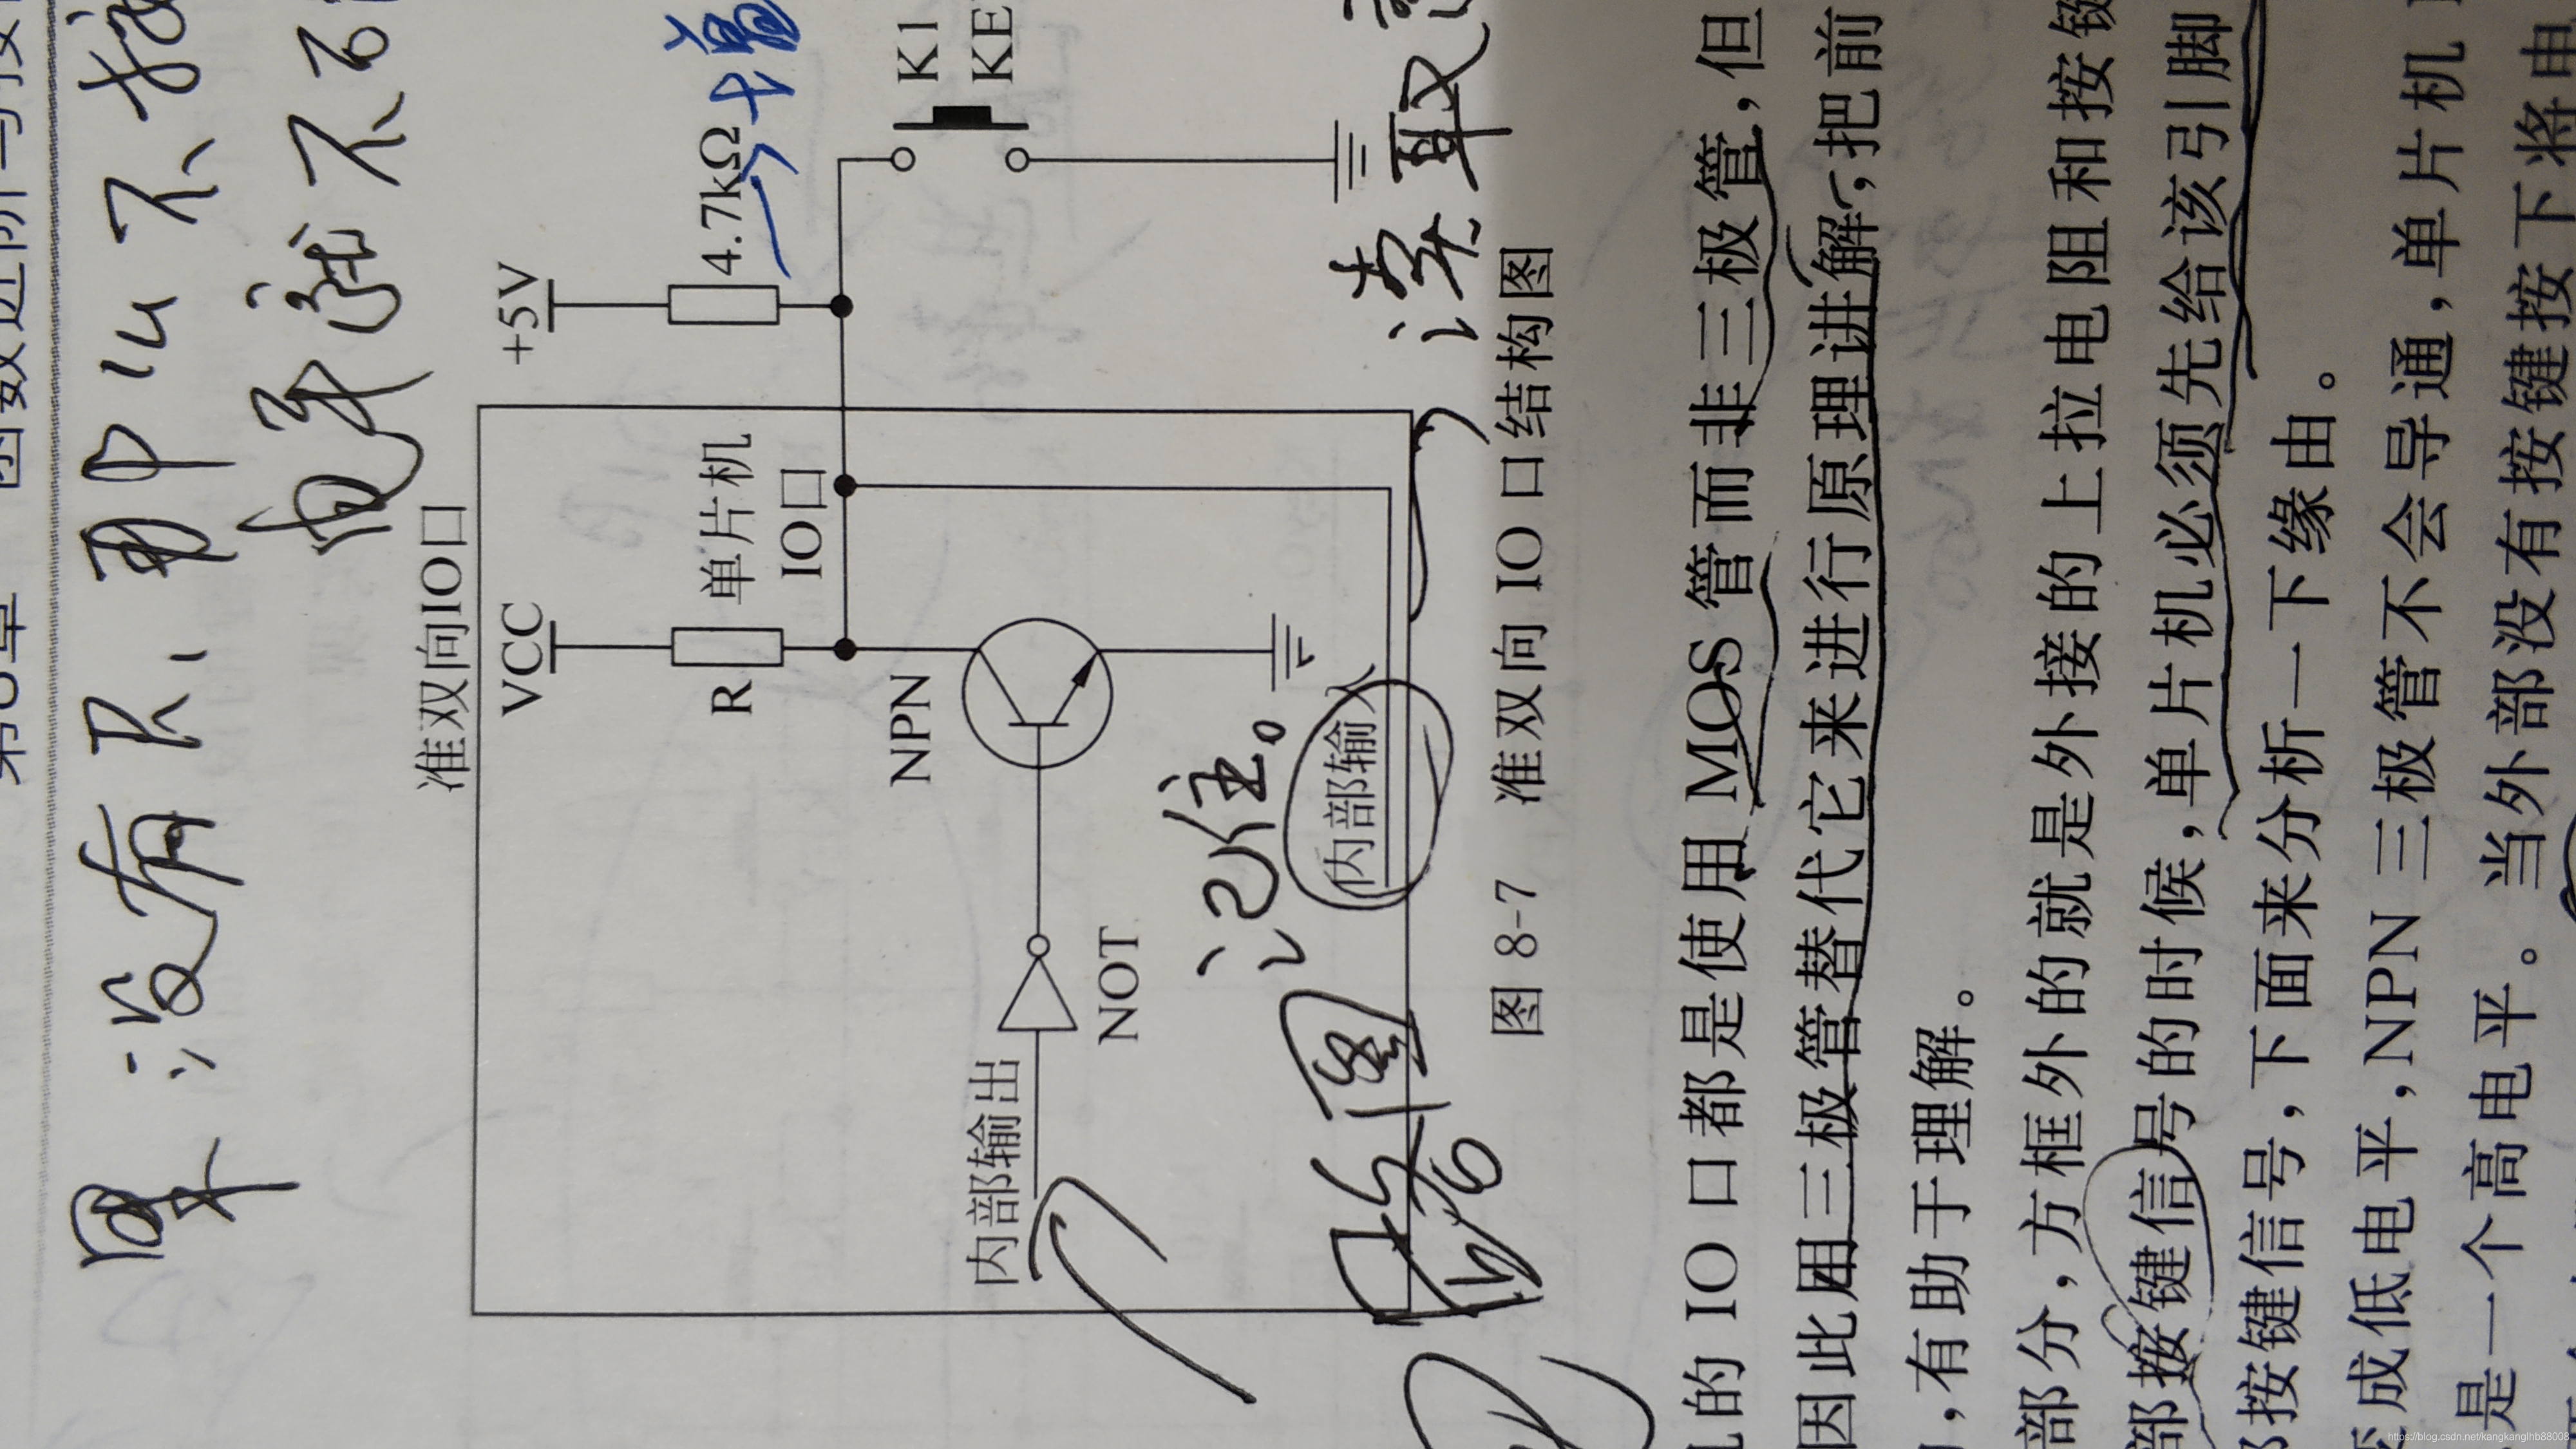 第8章 函数进阶与按
果没有R,那
电平就不
准双向IO口
VCC
+5V
R
单片机
IO口
4.7kΩ
NPN
K1
KE
内部输出
NOT
记住。
内部输入
读取
图 8-7 准双向 IO 口结构图
的 IO 口都是使用 MOS 管而非三极管,但
因此用三极管替代它来进行原理讲解,把前
,有助于理解。
部分,方框外的就是外接的上拉电阻和按键
部按键信号的时候,单片机必须先给该引脚
按键信号,下面来分析一下缘由。
成低电平,NPN 三极管不会导通,单片机
是一个高电平。当外部没有按键按下将电
https://blog.csdn.net/kangkanglhb88008